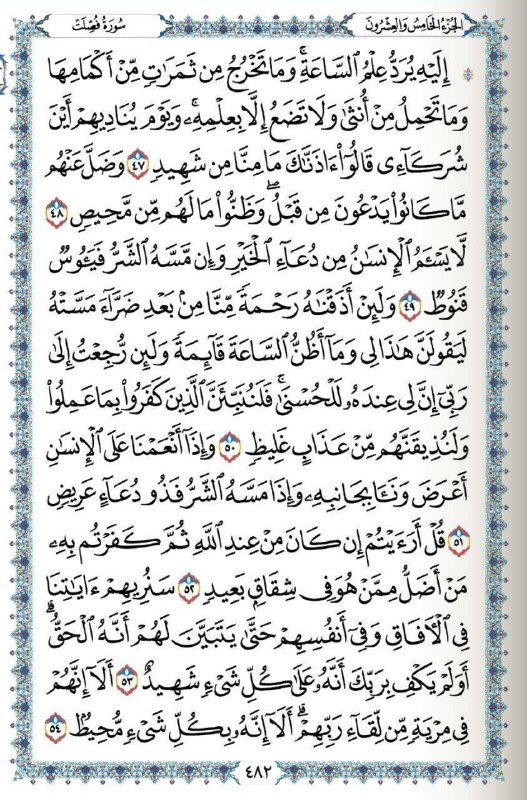 سُورَةُ فُصِّلَتْ الجُزْءُ الخَامِسُ وَالعِشْرُونَ
إِلَيْهِ يُرَدُّ عِلْمُ ٱلسَّاعَةِۚ وَمَا تَخْرُجُ مِن ثَمَرَٰتٍ مِّنْ أَكْمَامِهَا
وَمَا تَحْمِلُ مِنْ أُنثَىٰ وَلَا تَضَعُ إِلَّا بِعِلْمِهِۦۚ وَيَوْمَ يُنَادِيهِمْ أَيْنَ
شُرَكَآءِى قَالُوٓا۟ ءَاذَنَّٰكَ مَا مِنَّا مِن شَهِيدٍ ٤٧ وَضَلَّ عَنْهُم
مَّا كَانُوا۟ يَدْعُونَ مِن قَبْلُۖ وَظَنُّوا۟ مَا لَهُم مِّن مَّحِيصٍ ٤٨
لَّا يَسْـَٔمُ ٱلْإِنسَٰنُ مِن دُعَآءِ ٱلْخَيْرِ وَإِن مَّسَّهُ ٱلشَّرُّ فَيَـُٔوسٌ
قَنُوطٌ ٤٩ وَلَئِنْ أَذَقْنَٰهُ رَحْمَةً مِّنَّا مِنۢ بَعْدِ ضَرَّآءَ مَسَّتْهُ
لَيَقُولَنَّ هَٰذَا لِى وَمَآ أَظُنُّ ٱلسَّاعَةَ قَآئِمَةً وَلَئِن رُّجِعْتُ إِلَىٰ
رَبِّىٓ إِنَّ لِى عِندَهُۥ لَلْحُسْنَىٰۚ فَلَنُنَبِّئَنَّ ٱلَّذِينَ كَفَرُوا۟ بِمَا عَمِلُوا۟
وَلَنُذِيقَنَّهُم مِّنْ عَذَابٍ غَلِيظٍ ٥٠ وَإِذَآ أَنْعَمْنَا عَلَى ٱلْإِنسَٰنِ
أَعْرَضَ وَنَـَٔا بِجَانِبِهِۦ وَإِذَا مَسَّهُ ٱلشَّرُّ فَذُو دُعَآءٍ عَرِيضٍ
٥١ قُلْ أَرَءَيْتُمْ إِن كَانَ مِنْ عِندِ ٱللَّهِ ثُمَّ كَفَرْتُم بِهِۦ
مَنْ أَضَلُّ مِمَّنْ هُوَ فِى شِقَاقٍۭ بَعِيدٍ ٥٢ سَنُرِيهِمْ ءَايَٰتِنَا
فِى ٱلْـَٔافَاقِ وَفِىٓ أَنفُسِهِمْ حَتَّىٰ يَتَبَيَّنَ لَهُمْ أَنَّهُ ٱلْحَقُّۗ
أَوَلَمْ يَكْفِ بِرَبِّكَ أَنَّهُۥ عَلَىٰ كُلِّ شَىْءٍ شَهِيدٌ ٥٣ أَلَآ إِنَّهُمْ
فِى مِرْيَةٍ مِّن لِّقَآءِ رَبِّهِمْۗ أَلَآ إِنَّهُۥ بِكُلِّ شَىْءٍ مُّحِيطٌۢ ٥٤
٤٨٢